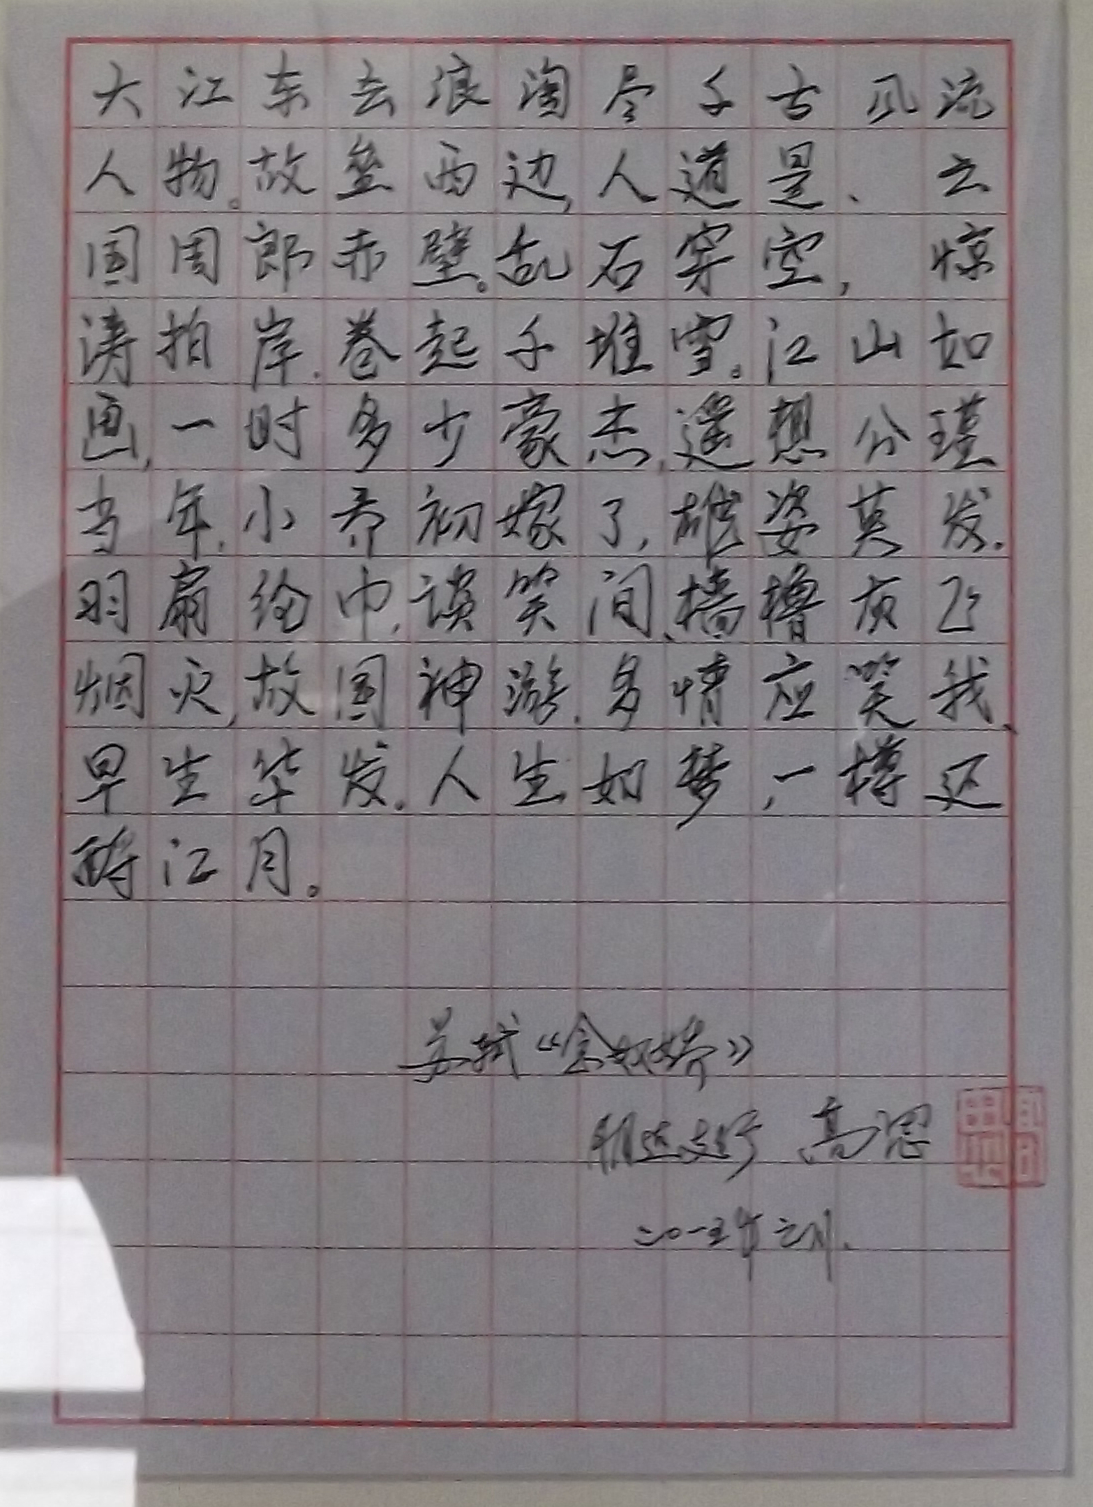 大江东去浪淘尽千古风流
人物。故垒西边,人道是、云
国周郎赤壁。乱石穿空,惊
涛拍岸,卷起千堆雪。江山如
画,一时多少豪杰,遥想公瑾
当年,小乔初嫁了,雄姿英发.
羽扇纶巾,谈笑间、樯橹灰飞
烟灭,故国神游,多情应笑我、
早生华发.人生如梦,一樽还
酹江月。
苏轼《念奴娇》
支行 高思
二〇一五年二月.